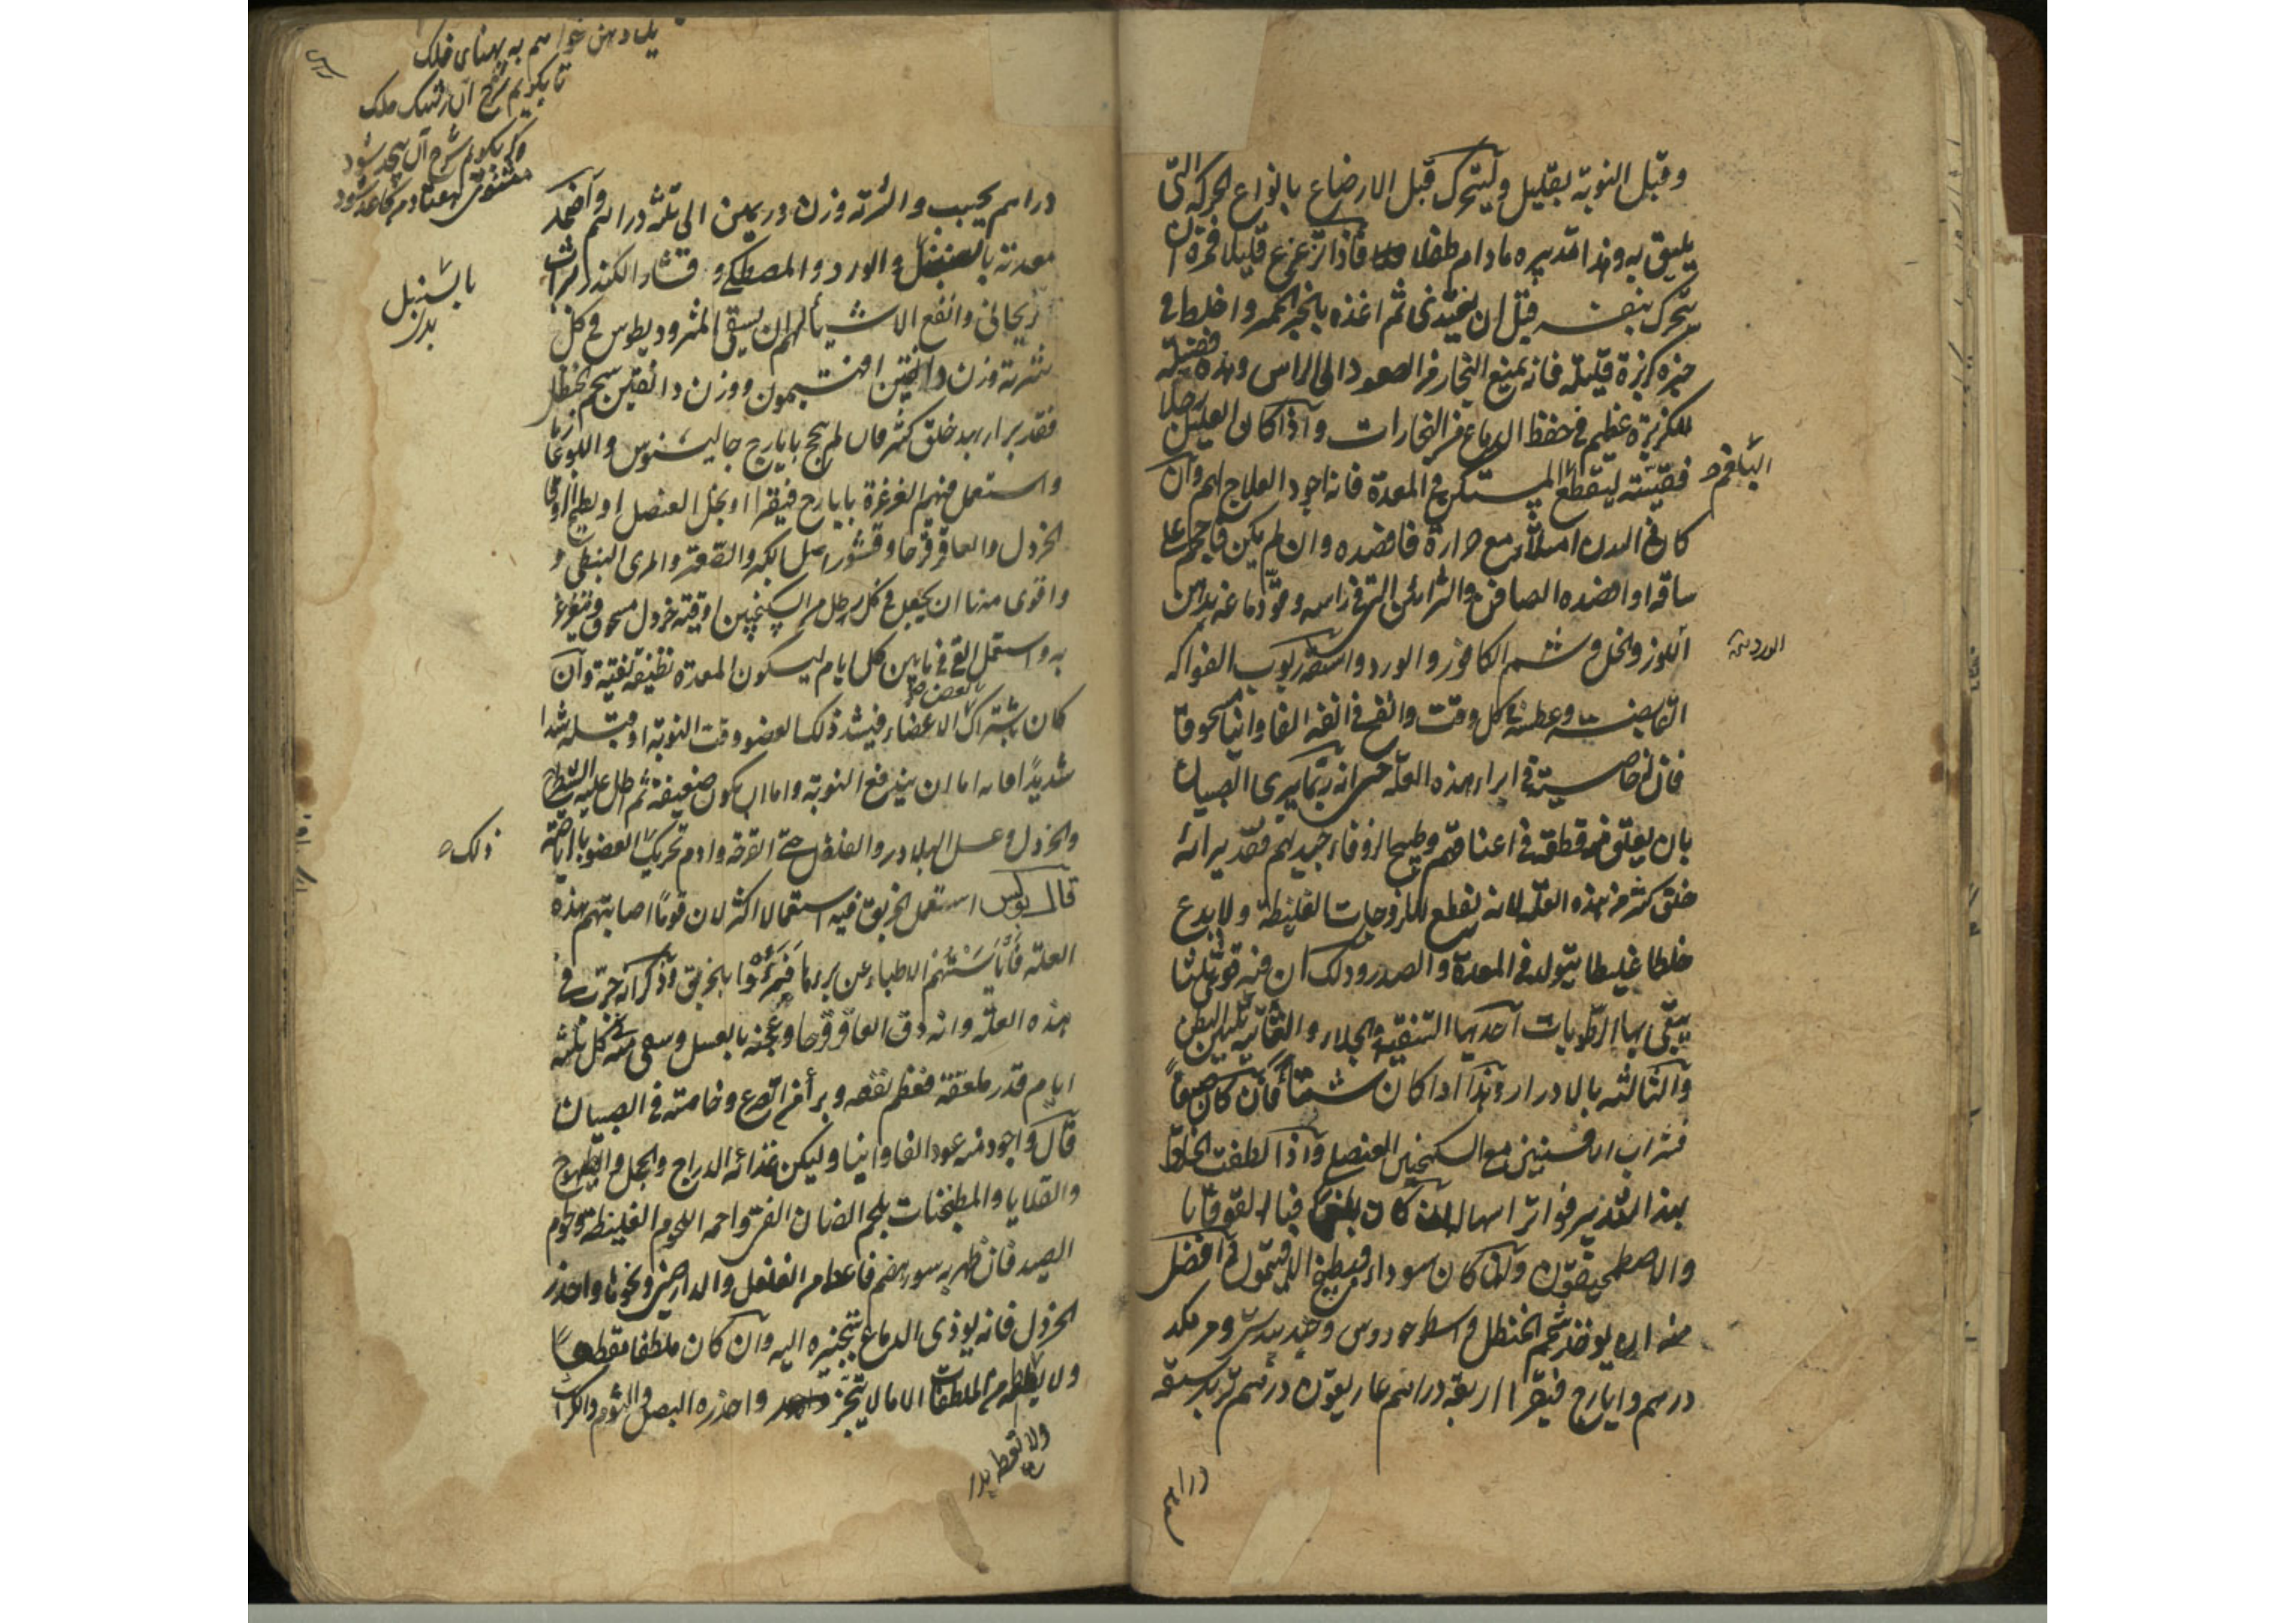 وقبل النوبة بقليل وليتحرك قبل الارضاع بانواع الحركه التى
يليق به وهذا تدبيره ما دام طفلا فاذا ترعرع قليلا فمره ان
يتحرك بنفسه قبل ان يغتذى ثم اغذه بالخبز الخمير واخلط فى
خبزه كزبرة قليلة فانه يمنع البخار من الصعود الى الراس وهذه فضيلة
للكزبرة عظيم فى حفظ الدماغ من البخارات واذا كان العليل رجلا
فقيئه ليقطع المستكن فى المعدة فانه اجود العلاج لهم وان
البلغم
كان فى البدن امتلاء مع حرارة فافصده وان لم يكن فاحجم على
ساقه او افصده الصافن والشرائين التى فى راسه وقو دماغه بدهن
اللوز والخل وشم الكافور والورد واسقه ربوب الفواكه
القابضة وعطسه كل وقت وانفخ فى انفه الفاوانيا مسحوقا
فان له خاصية فى ابراء هذه العلة حتى انه ربما يبرى الصبيان
بان يعلق منه قطعة فى اعناقهم وطبيخ الزوفاء جيد لهم فقد يبرا به
خلق كثير من هذه العلة لانه يقطع اللزوجات الغليظة ولا يدع
خلطا غليظا يتولد فى المعدة والصدر وذلك ان فيه قوى ثلثا
ينقى بها الرطوبات احديها التنقية والجلاء والثانية تليين البطن
والثالثة بالادرار وهذا اذا كان شتاء فان كان صيفا
فشراب الافسنتين مع السكنجبين العنصلى واذا لطفت الخلط
بهذا التدبير فواتر اسهاله ان كان بلغم فبالقوقايا
والاصطمحيقون وان كان سوداء فبطبيخ الافتيمون وافضل
منه ان يوخذ شحم الحنظل واسطوخودوس وجندبيدستر ومر مكد
درهم وايارج فيقرا اربعة دراهم غاريقون درهم تربد ستة
دراهم
يك دهن خواهم به پهناى فلك
تا بگويم شرح آن رشك ملك
گر بگويم شرح آن بيحد شود
مثنوى هفتاد من كاغذ شود
دراهم يحبب والشربة وزن درهمين الى ثلثة دراهم واضمد
معدته بالسنبل والورد والمصطكى وقشار الكندر وشراب
بالسنبل
بدل
ريحانى وانفع الاشياء لهم ان يسقى المثروديطوس فى كل
شربة وزن دانقين افتيمون ووزن دانقين شحم الحنظل
فقد برا بهذا خلق كثير فان لم ينجح بايارج جالينوس واللوغاذيا
واستعمل فيهم الغرغرة بايارج فيقرا او بخل العنصل او بطبيخ الزوفا
الخردل والعاقرقرحا وقشور اصل الكبر والصعتر والمرى النبطى و
واقوى منها ان يجعل فى كل رطل من السكنجبين اوقية خردل مسحوق ويتغرغر
به واستعمل القى فيما بين كل ايام ليكون المعدة نظيفة نقية وان
كان باشتراك بعض الاعضاء فيشد ذلك العضو وقت النوبة او قبله شدا
شديدا فانه اما ان يندفع النوبة واما ان يكون ضعيفة ثم اطل عليه الشيطرج
والخردل وعسل البلادر والفلفل حتى القرحة وادم تحريك العضو بالرياضة
ذلك
قال بولس استعمل الخربق فيه استعمالا اكثر لان قوما اصابتهم هذه
العلة فايسهم الاطباء عن برئها فبرؤا بالخربق وذكر انه جرب فى
هذه العلة وانه دق العاقرقرحا وعجنه بالعسل وسقى منه كل ثلثة
ايام قدر ملعقة فعظم نفعه وبرأ من الصرع وخاصة فى الصبيان
قال واجود منه عود الفاوانيا وليكن غذائه الدراج والحجل والطيهوج
والقلايا والمطبخات بلحم الضان الفتى واحمه اللحوم الغليظة ولحوم
الصيد فان ظهر به سوء هضم فاعطه من الفلفل والدارصينى ونحوها واحذر
الخردل فانه يوذى الدماغ بتبخيره اليه وان كان ملطفا مقطعا
ولا يعطه من الملطفات الا ما لا يتبخر واحذره البصل والثوم والكراث
ولا تعطه
بدل